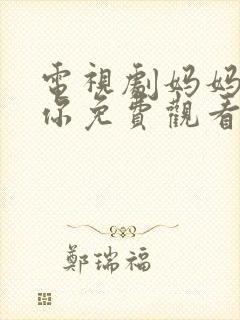 電視劇妈妈
你免費觀看
鄭瑞福